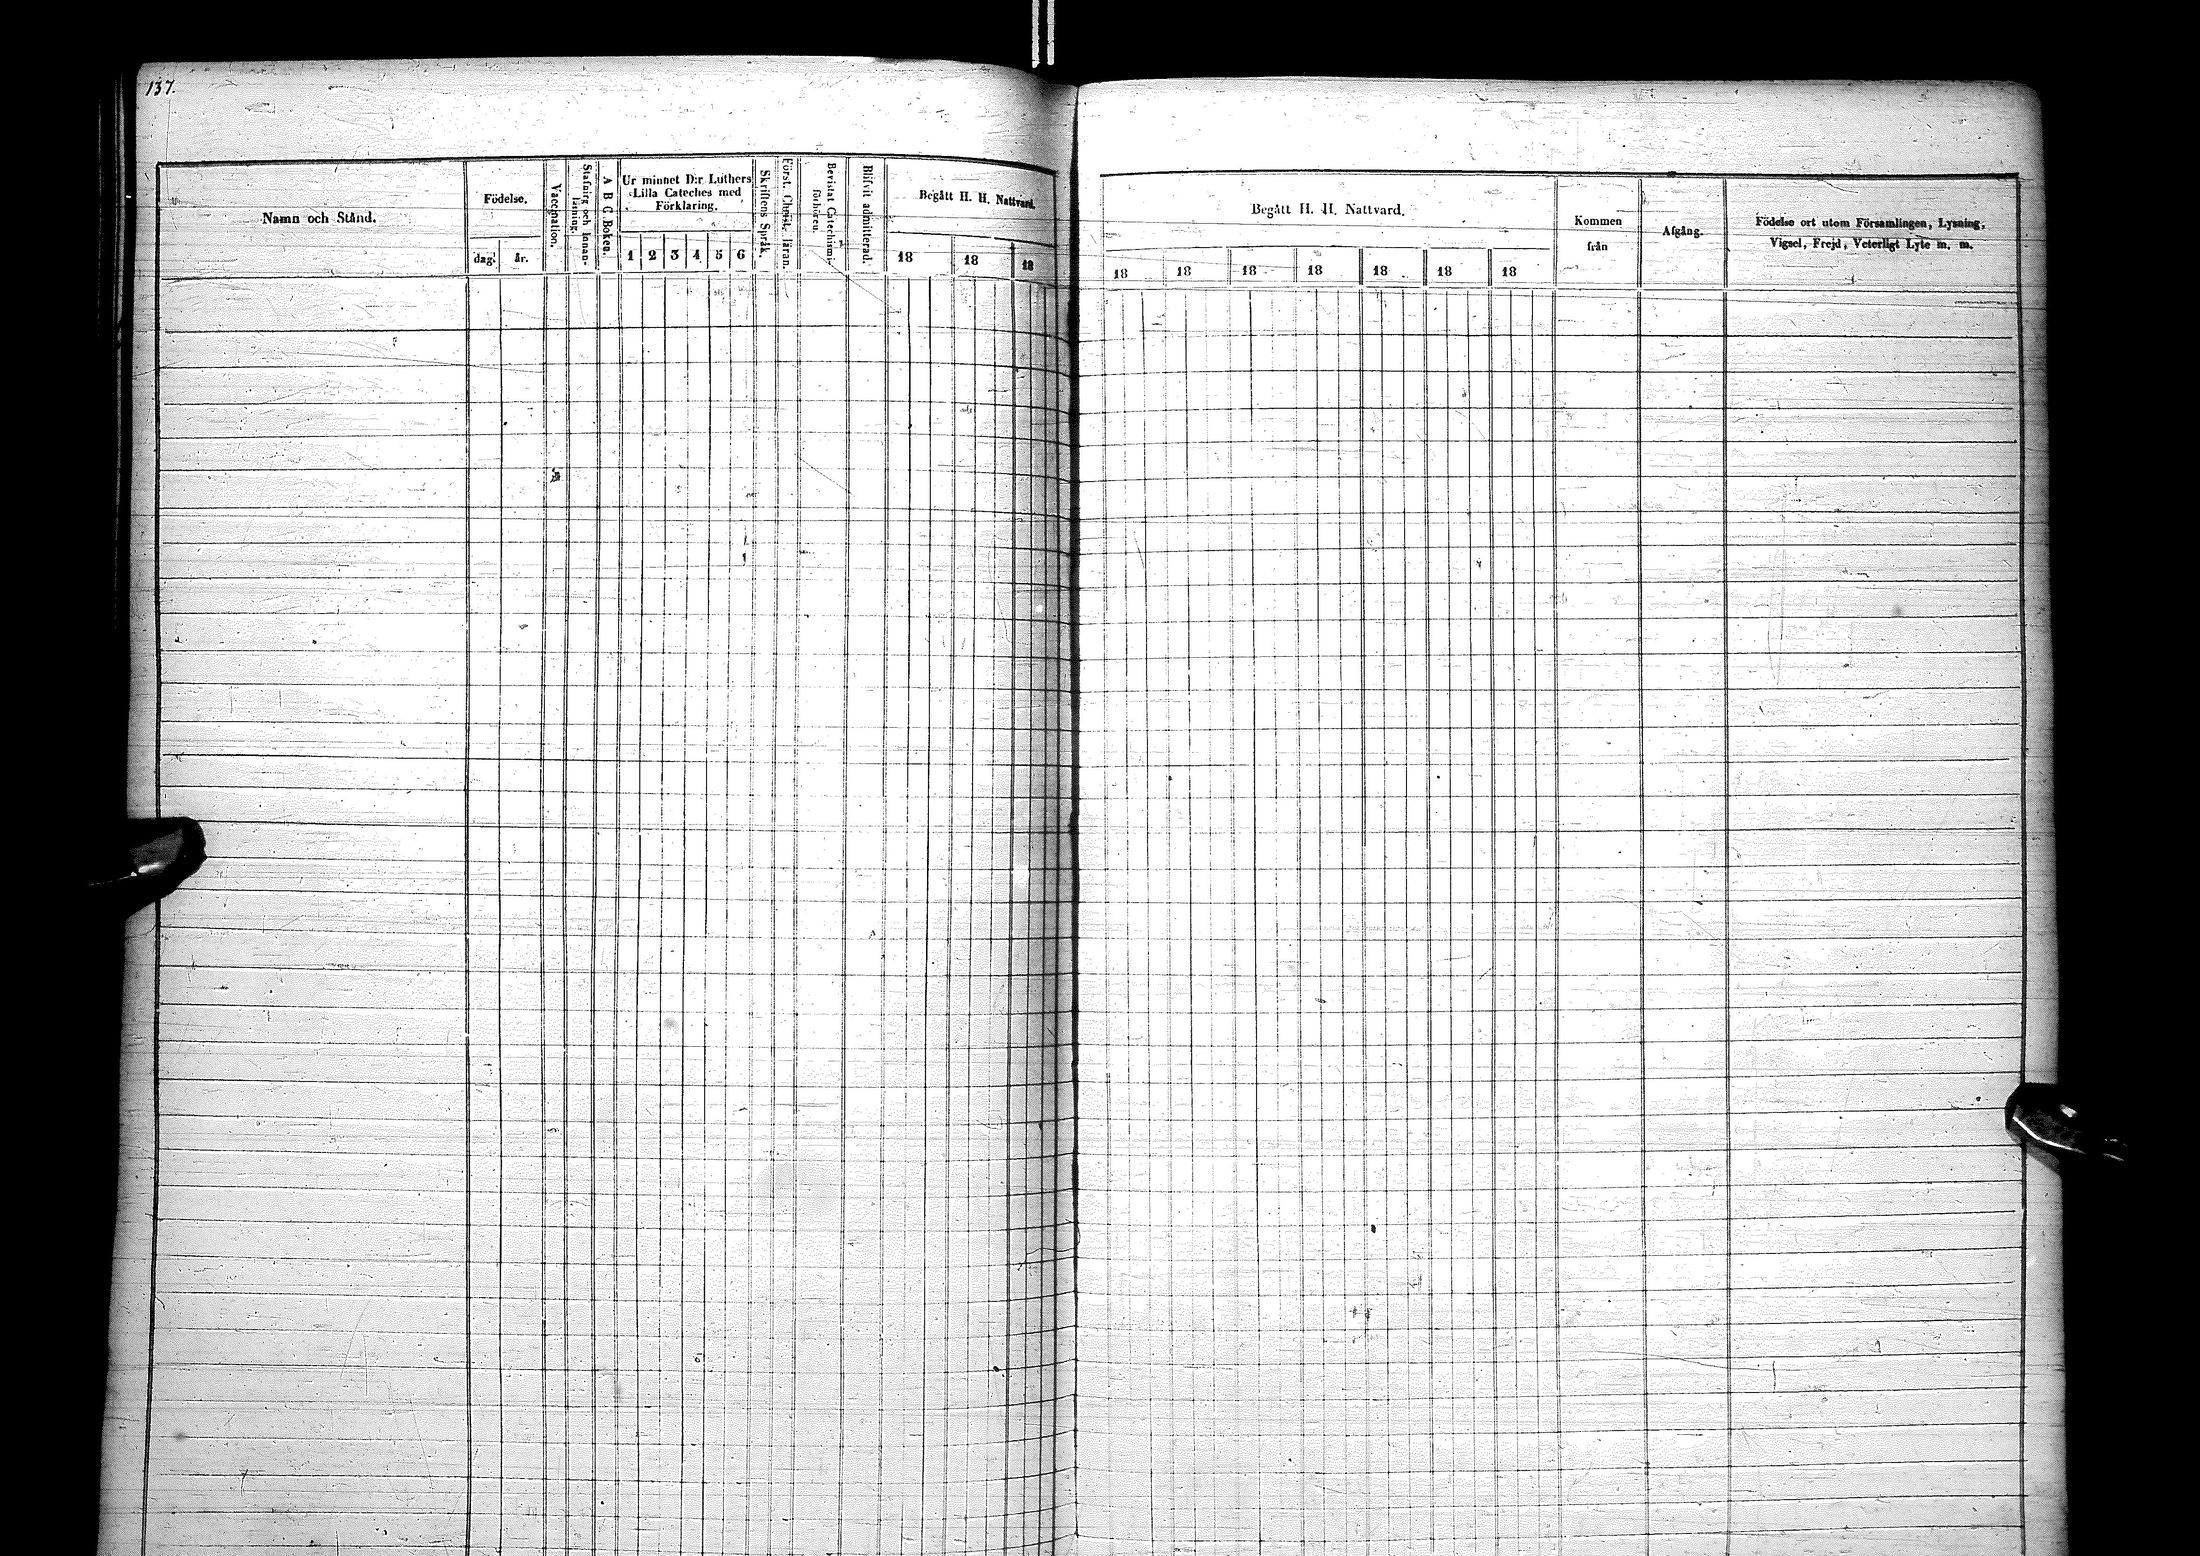 137.
Namn och Stånd.
Födelse.
dag.
år.
Vaccination.
Stafning och Innan-
läsning.
A B C Boken.
Ur minnet D:r Luthers
Lilla Cateches med
Förklaring.
1 2 3 4 5 6
Skriftens Språk.
Först. Christ. läran.
Bevistat Catechismi-
förhören.
Blifvit admitterad.
Begått H. H. Nattvard.
18 18 18
Begått H. H. Nattvard.
18 18 18 18 18 18 18
Kommen
från
Afgång.
Födelse ort utom Församlingen, Lysning,
Vigsel, Frejd, Veterligt Lyte m. m.